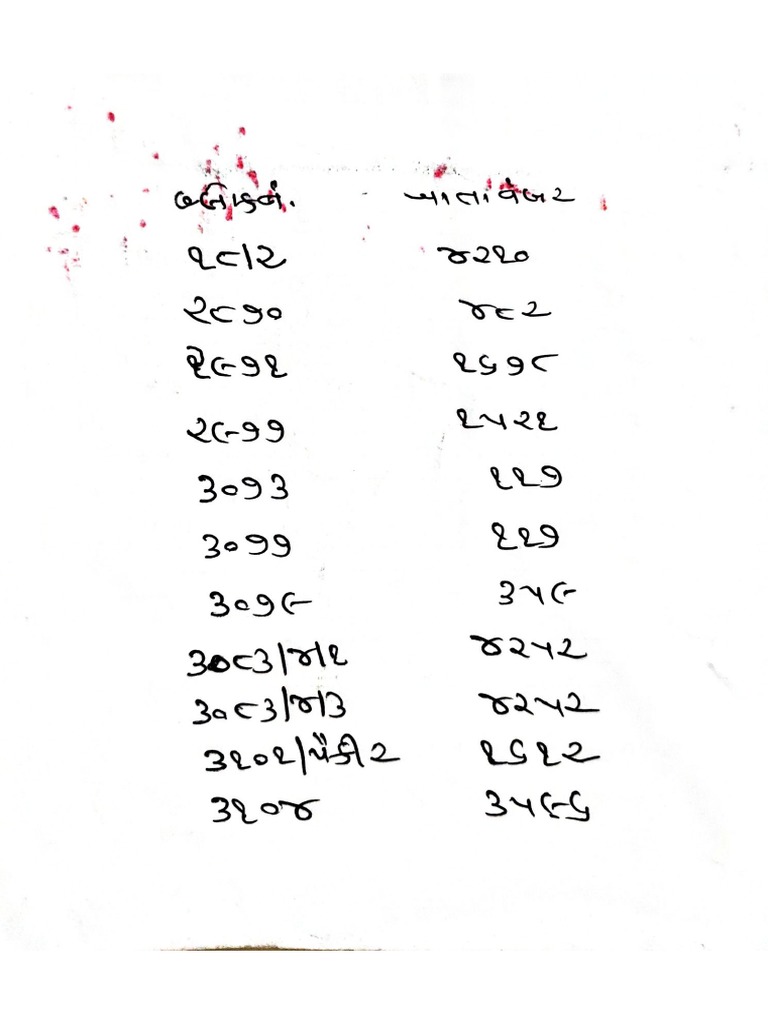 બ્લોકનં. ખાતાનંબર
૧૮/૨ ૪૨૧૦
૨૮૭૦ ૪૮૨
૨૯૭૧ ૧૬૭૮
૨૯૭૭ ૧૫૨૧
૩૦૭૩ ૧૧૭
૩૦૭૭ ૧૧૭
૩૦૭૯ ૩૫૯
૩૦૮૩/૪/૧ ૪૨૫૨
૩૦૮૩/૪/૩ ૪૨૫૨
૩૧૦૧/પૈકી ૨ ૧૬૧૨
૩૧૦૪ ૩૫૯૬